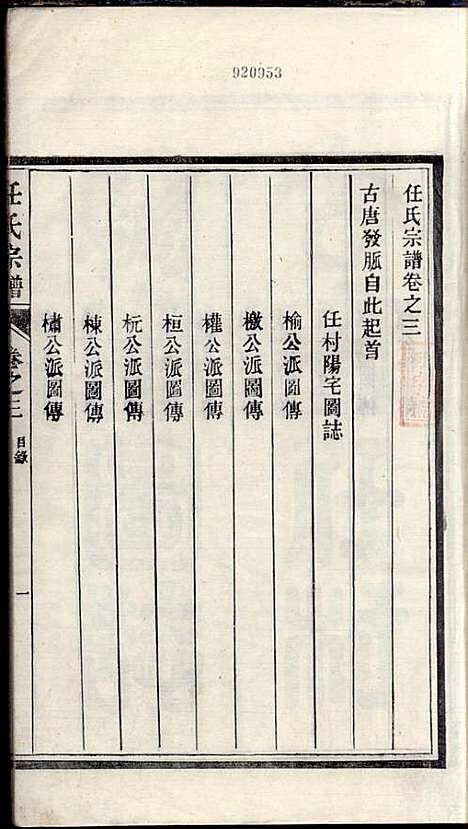 920953
任氏宗譜卷之三
古唐發脈自此起首
任村陽宅圖誌
榆公派圖傳
檄公派圖傳
權公派圖傳
桓公派圖傳
杬公派圖傳
棟公派圖傳
橚公派圖傳
任氏宗譜
卷之三
目錄
一